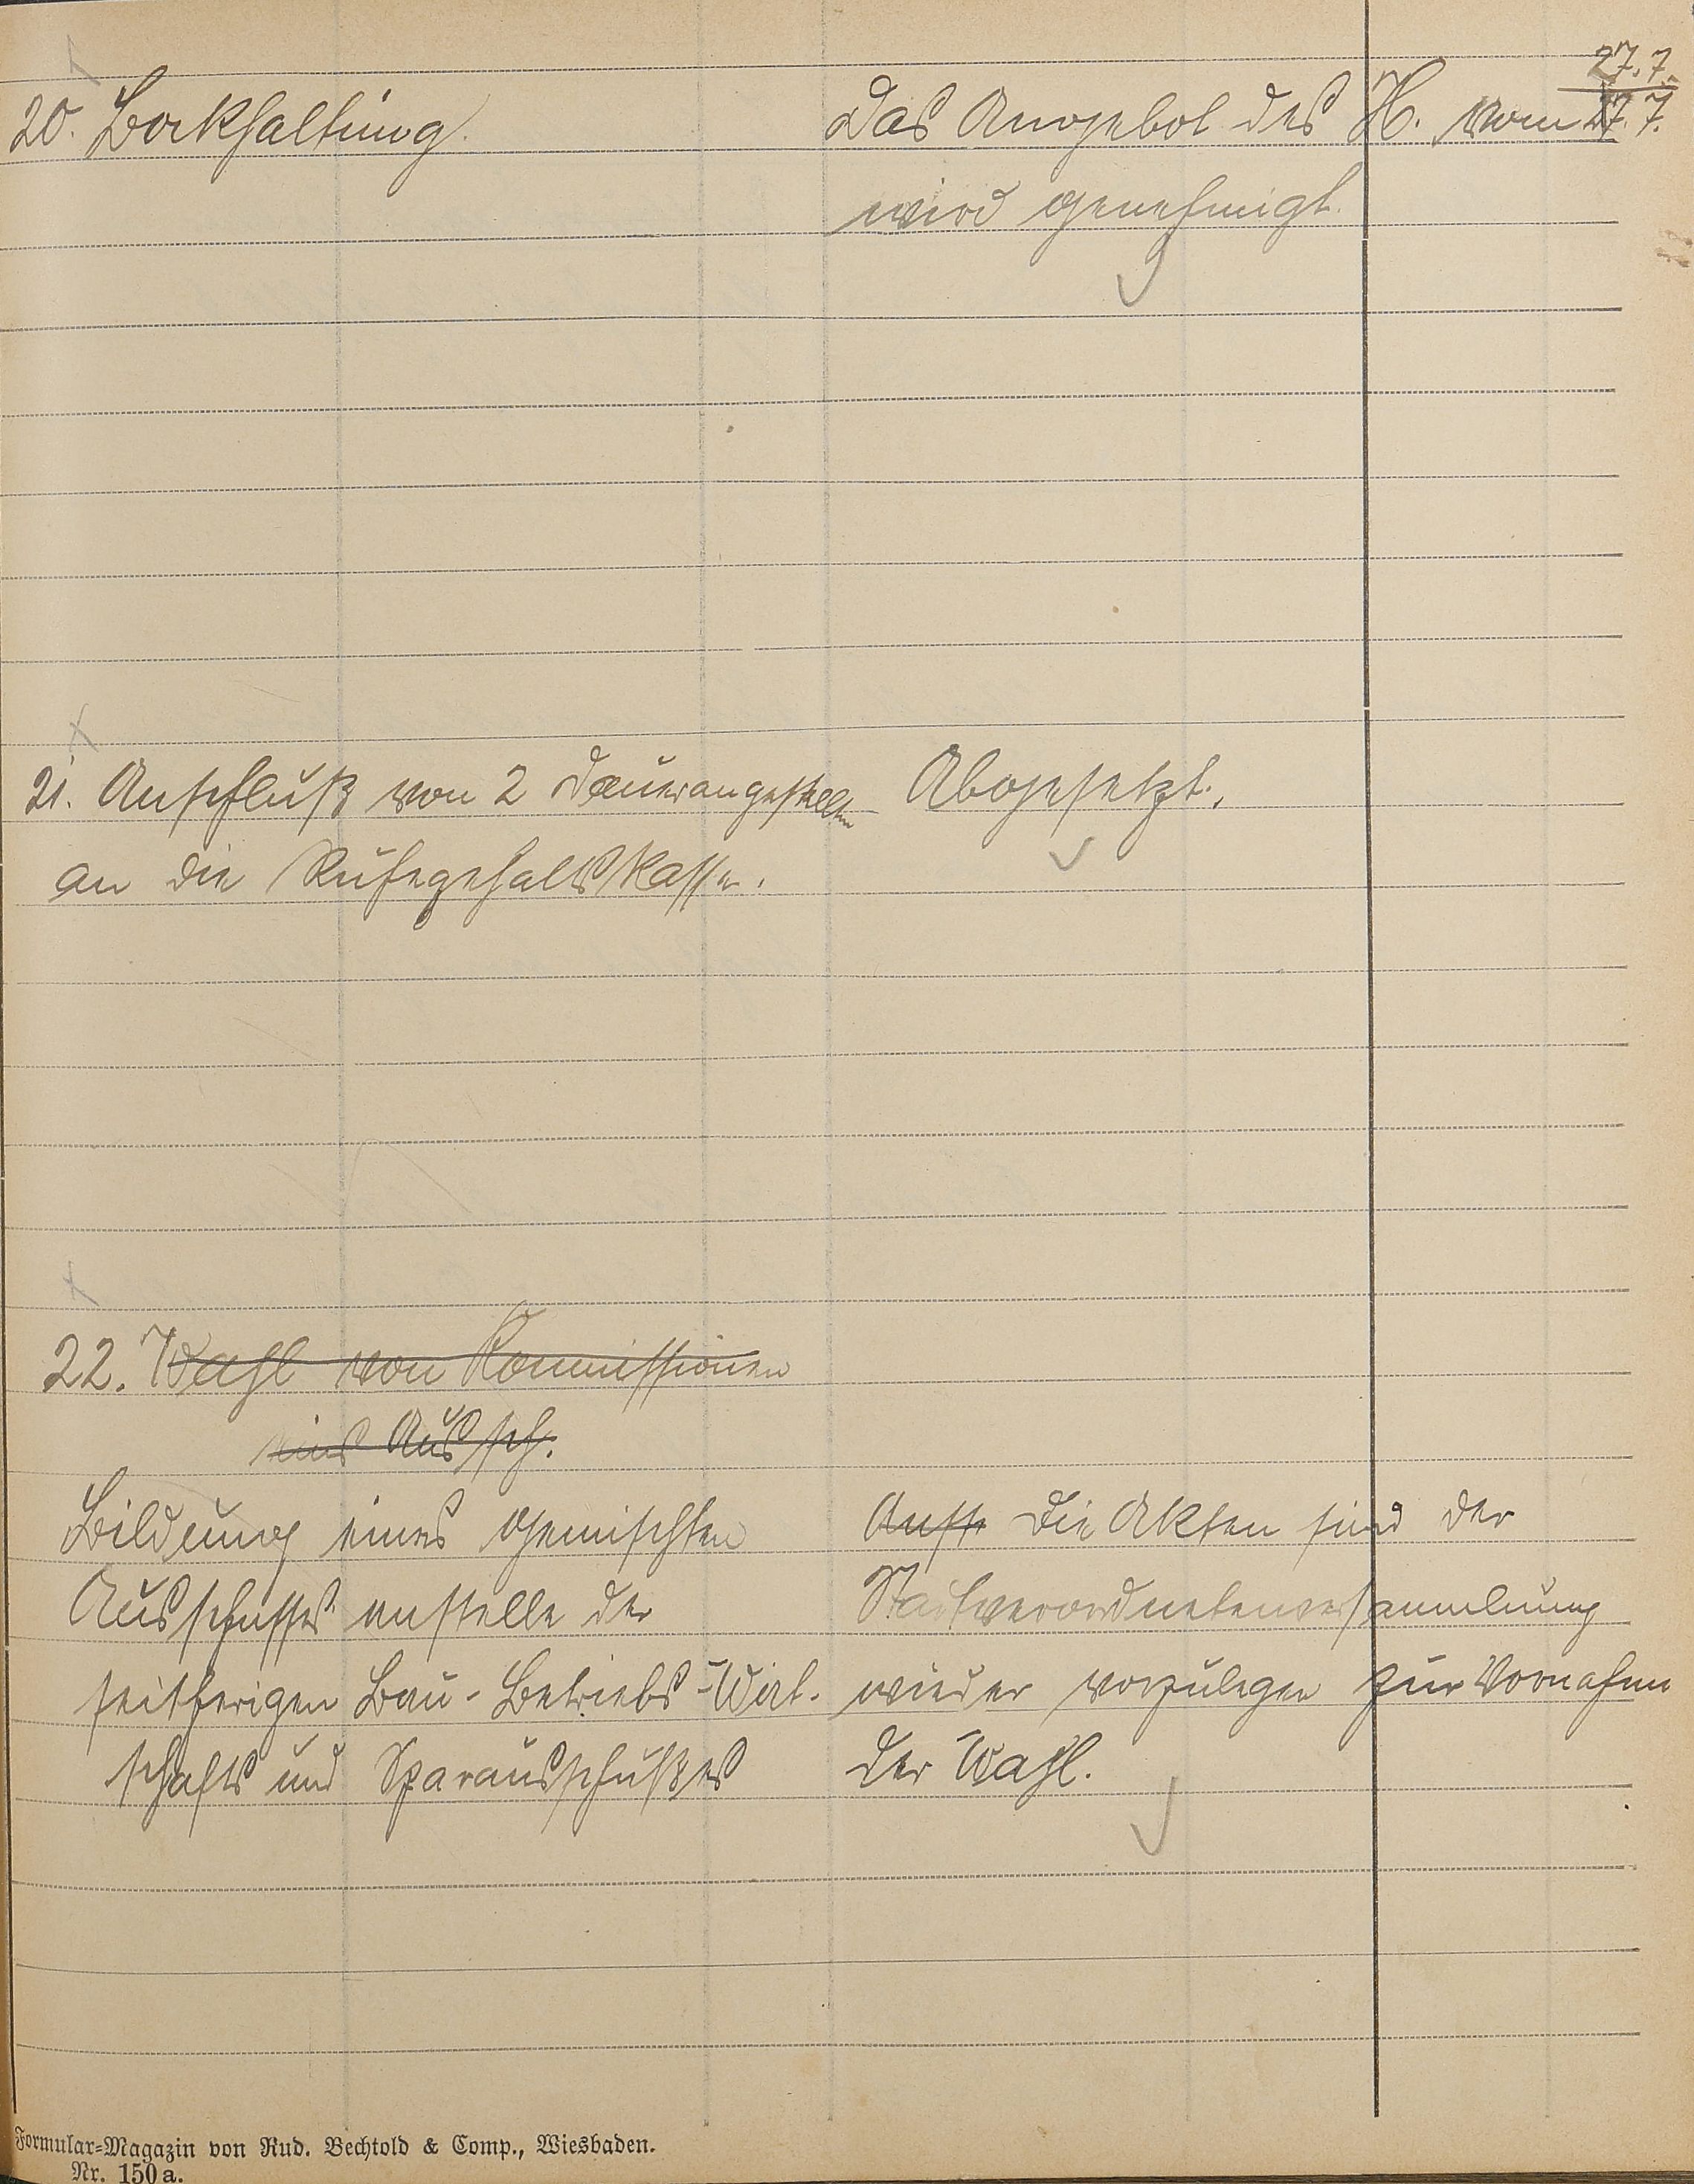 27.7.
20. Bockhaltung. Das Angebot des H. vom 27.7.
wird genehmigt.
21. Anschluß von 2 Dauerangestellten Abgesetzt.
an die Ruhegehaltskasse.
22. Wahl von Kommissionen
eines Aussch.
Bildung eines gemischten
Ausschusses anstelle der
seitherigen Bau- Betriebs- Wirt.
schafts und Sparausschußes
Die Akten sind der
Stadtverordnetenversammlung
wieder vorzulegen zur Vornahme
der Wahl.
Formular=Magazin von Rud. Bechtold & Comp., Wiesbaden.
Nr. 150a.